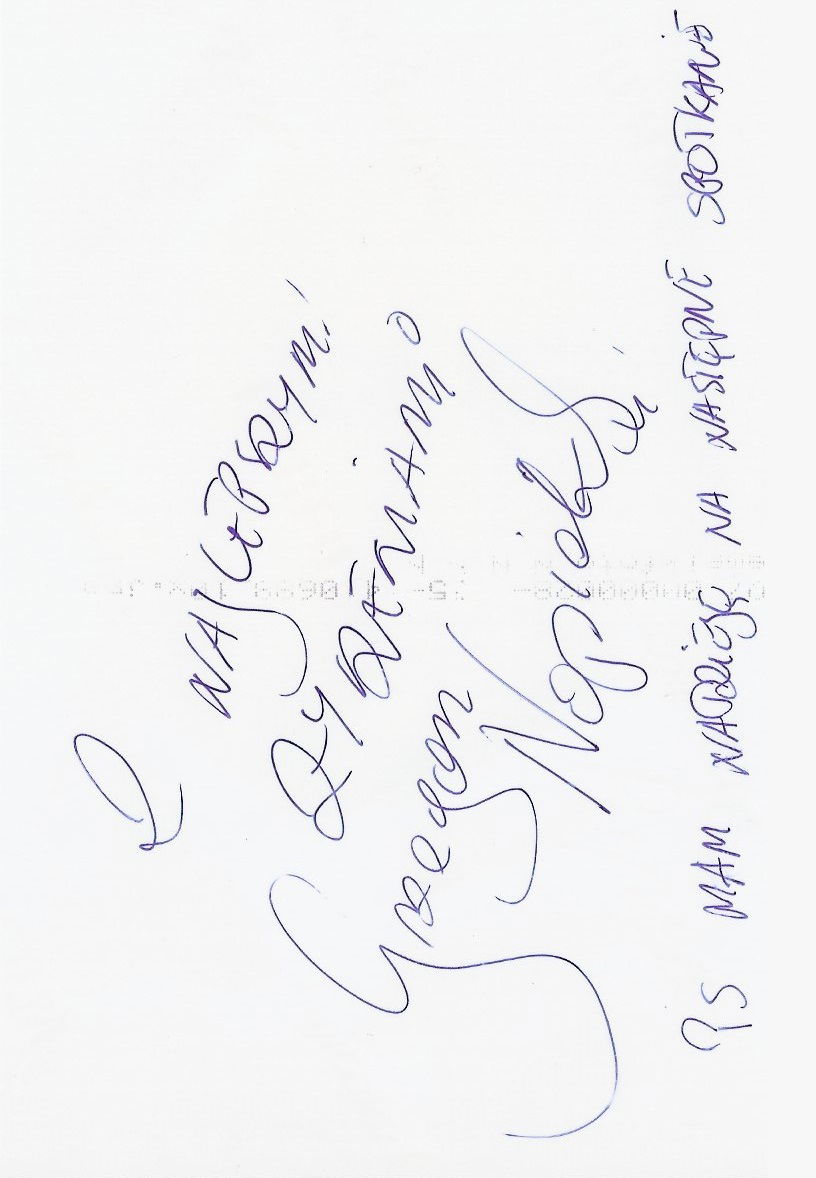 Z
NAJLEPSZYMI
ŻYCZENIAMI
Grzegorz
Napieralski
PS MAM NADZIEJĘ NA NASTĘPNE SPOTKANIE